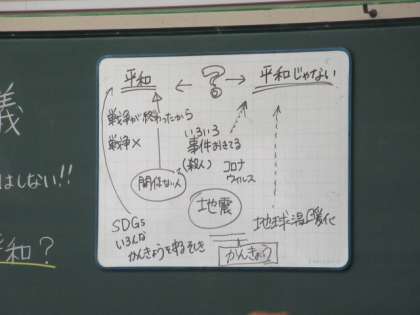 義
はしない!!
平和?
平和 ← ? → 平和じゃない
戦争が終わったから
戦争×
いろいろ
事件おきてる
(殺人)
コロナ
ウィルス
関係ない人
地震
SDGs
いろんな
かんきょうを守る
地球温暖化
かんきょう